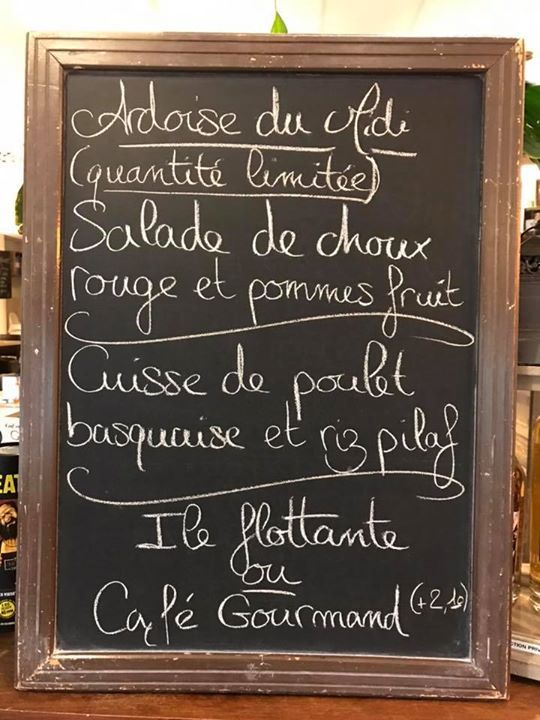 Ardoise du Midi
(quantité limitée)
Salade de choux
rouge et pommes fruit
Cuisse de poulet
basquaise et riz pilaf
Ile flottante
ou
Café Gourmand (+2,1€)